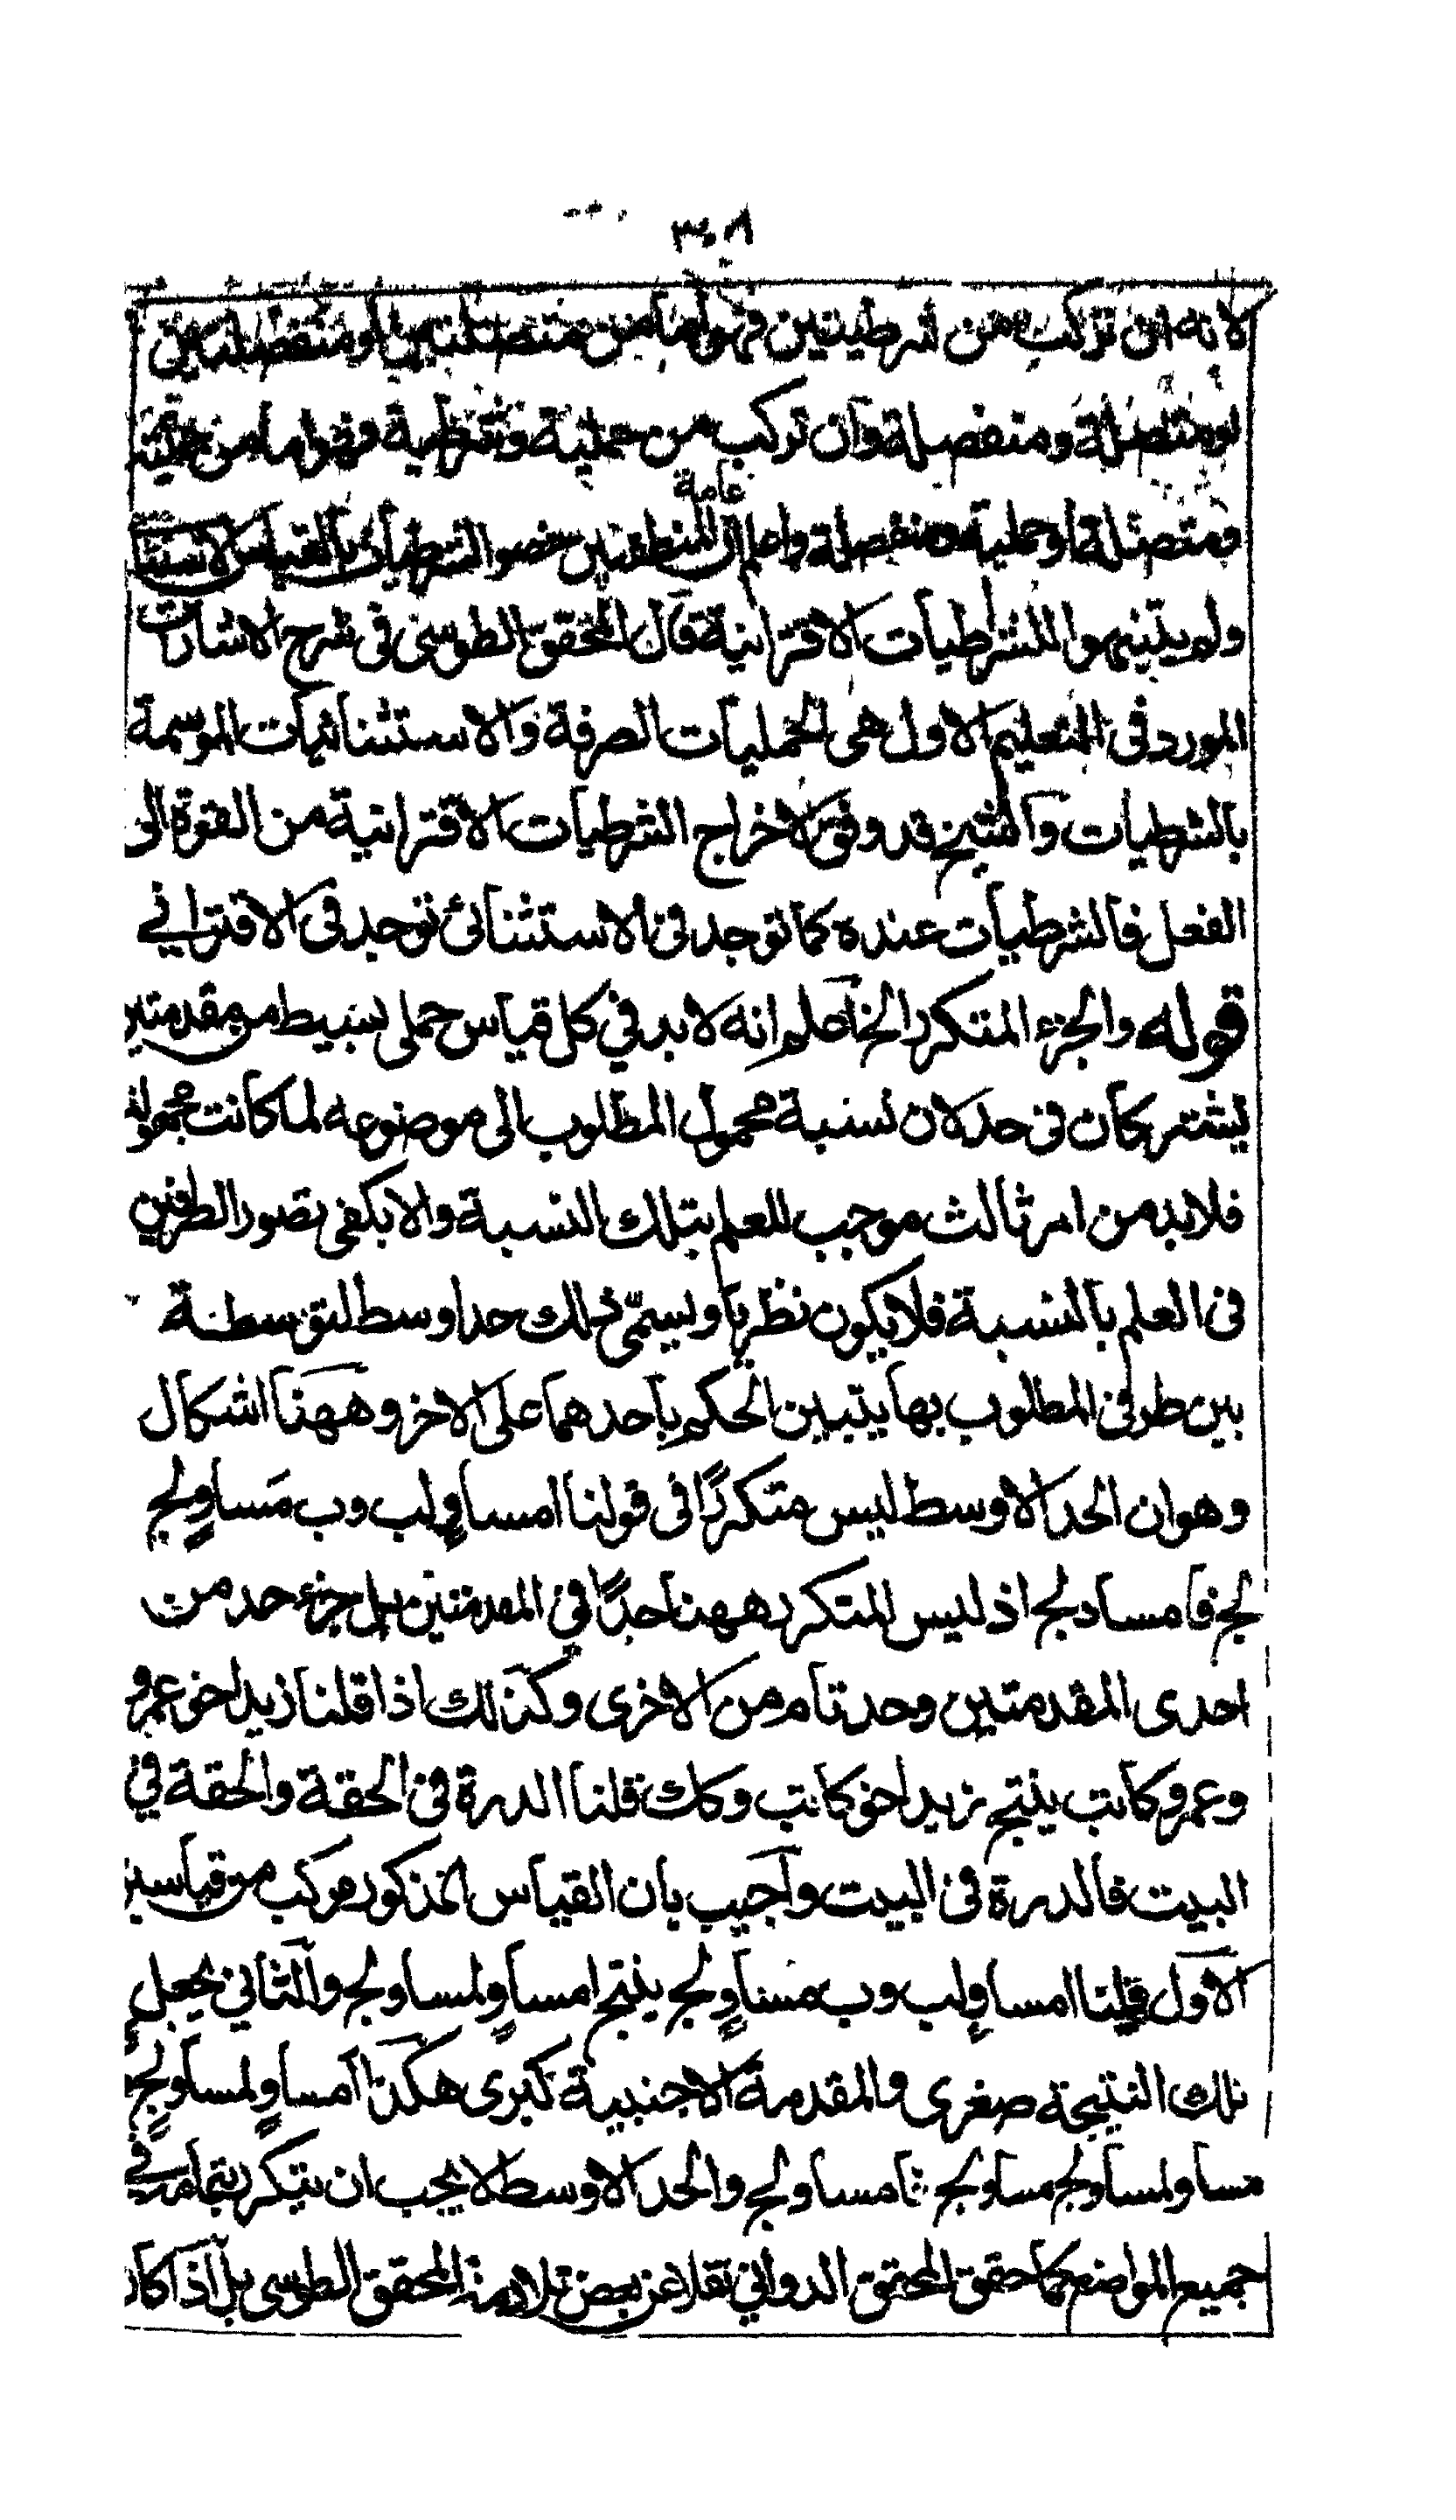 ٣٠٨
لانه ان تركب من شرطيتين فهو اما من متصلتين او منفصلتين
او متصلة ومنفصلة وان تركب من حملية وشرطية فهو اما من حملية
ومتصلة او حملية ومنفصلة واعلم ان عامة المنطقيين خصوا الشرطيات بالقياس الاستثنا
ولم يتنبهوا للشرطيات الاقترانية قال المحقق الطوسى فى شرح الاشارات
المورد فى التعليم الاول هى الحمليات الصرفة والاستثنائيات الموسمة
بالشرطيات والشيخ قد وفق لاخراج الشرطيات الاقترانية من القوة الى
الفعل فالشرطيات عنده كما توجد فى الاستثنائى توجد فى الاقترانى
قوله والجزء المتكرر الخ اعلم انه لا بد فى كل قياس حملى بسيط من مقدمتين
يشتركان فى حد لان نسبة محمول المطلوب الى موضوعه لما كانت مجهولة
فلا بد من امر ثالث موجب للعلم بتلك النسبة والا يكفى تصور الطرفين
فى العلم بالنسبة فلا يكون نظريا ويسمّى ذلك حدا وسط لتوسطه
بين طرفى المطلوب بها يتبين الحكم باحدهما على الاخر وههنا اشكال
وهو ان الحد الاوسط ليس متكررًا فى قولنا ا مساوٍ لب وب مساوٍ لج
لج فا مساو لج اذ ليس المتكرر ههنا حدًا فى المقدمتين بل جزء حد من
احدى المقدمتين وحد تام من الاخرى وكذالك اذا قلنا زيد اخو عمرو
وعمرو كاتب ينتج زيد اخو كاتب وكك قلنا الدرة فى الحقة والحقة فى
البيت فالدرة فى البيت واجيب بان القياس المذكور مركب من قياسين
الاول قولنا ا مساوٍ لب وب مساوٍ لج ينتج ا مساوٍ لمساو لج والثانى يجعل
تلك النتيجة صغرى والمقدمة الاجنبية كبرى هكذا ا مساوٍ لمساوٍ لج و
مساو لمساو لج مساو لج فا مساو لج والحد الاوسط لا يجب ان يتكرر بتمامه فى
جميع المواضع كما حقق المحقق الدوانى نقلا عن بعض تلامذة المحقق الطوسى بل اذا كان